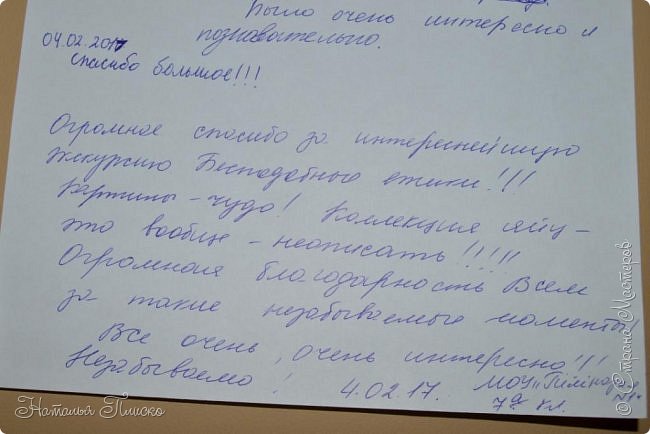 было очень интересно и
познавательно.
04.02.2017
Спасибо большое!!!
Огромное спасибо за интереснейшую
экскурсию Бесподобные ёжики!!!
Картины - чудо! Коллекция яиц -
это вообще - неописать!!!!!
Огромная благодарность Всем
за такие незабываемые моменты!
Все очень, очень интересно!!!
Незабываемо! 4.02.17. МОУ
7 кл.
Наталья Писко
© Страна Мастеров